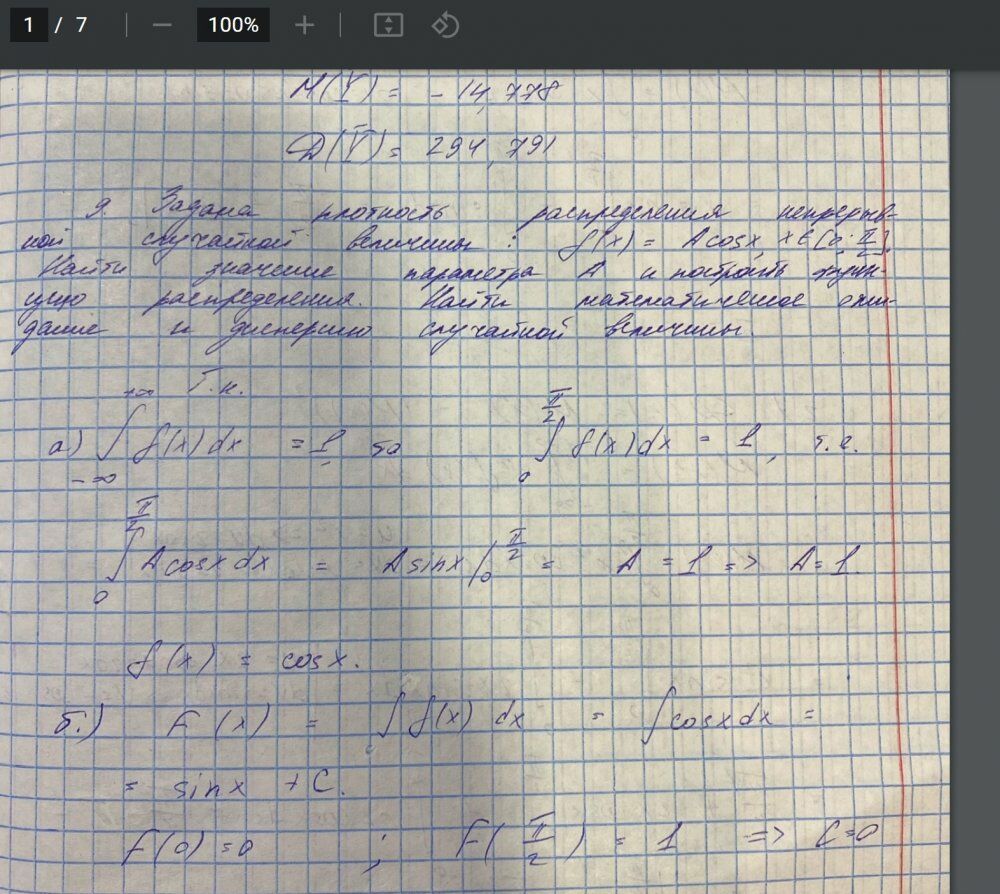 1 / 7
100%
M(Y) = - 14,778
D(Y) = 294,791
9. Задана плотность распределения непрерыв-
ной случайной величины: f(x) = A cosx, x ∈ [0; π/2].
Найти значение параметра A и построить функ-
цию распределения. Найти математическое ожи-
дание и дисперсию случайной величины.
Т.к.
а) ∫_{-∞}^{+∞} f(x) dx = 1, то ∫_0^{π/2} f(x) dx = 1, т.е.
∫_0^{π/2} A cosx dx = A sinx |_0^{π/2} = A = 1 => A = 1.
f(x) = cosx.
б.) F(x) = ∫ f(x) dx = ∫ cosx dx =
= sinx + C.
F(0) = 0 ; F(π/2) = 1 => C = 0